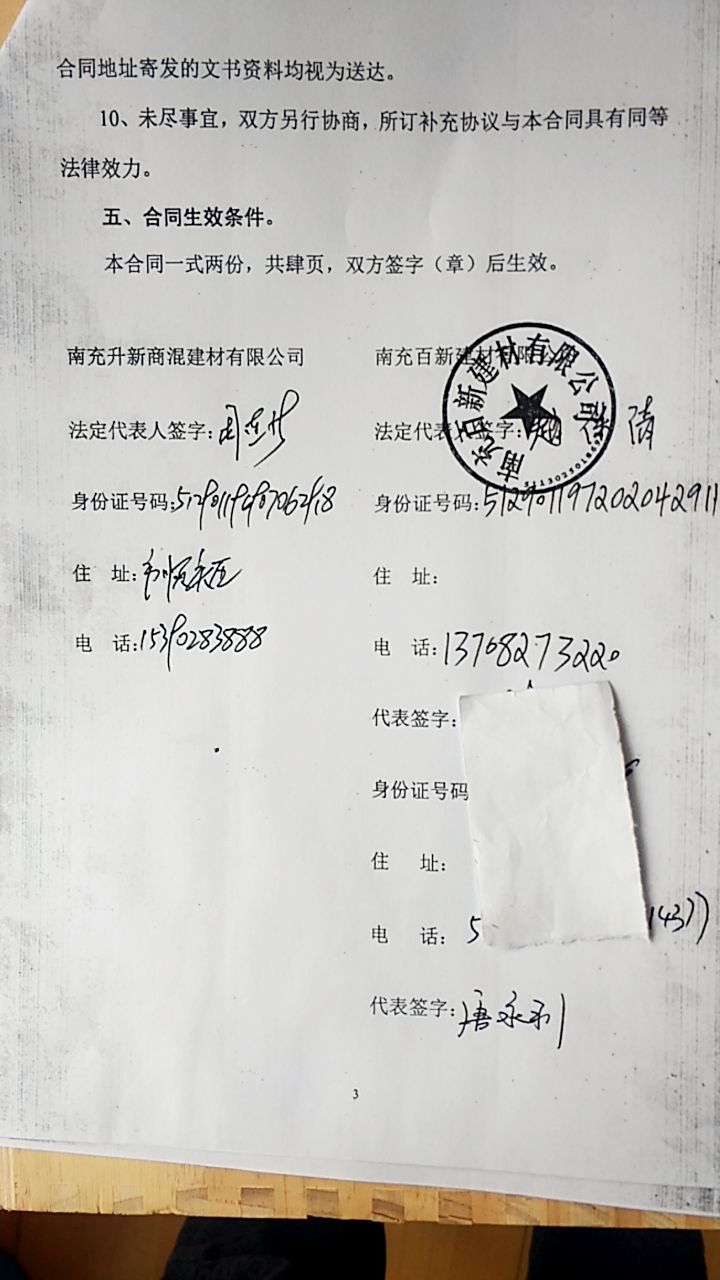 合同地址寄发的文书资料均视为送达。
10、未尽事宜，双方另行协商，所订补充协议与本合同具有同等
法律效力。
五、合同生效条件。
本合同一式两份，共肆页，双方签字（章）后生效。
南充升新商混建材有限公司
南充百新建材有限公司
南充百新建材有限公司
法定代表人签字：
法定代表人签字：
身份证号码：
身份证号码：512901197202042911
住 址：
住 址：
电 话：15390283888
电 话：13708273220
代表签字：
身份证号码
住 址：
电 话：5
代表签字：唐永利
3